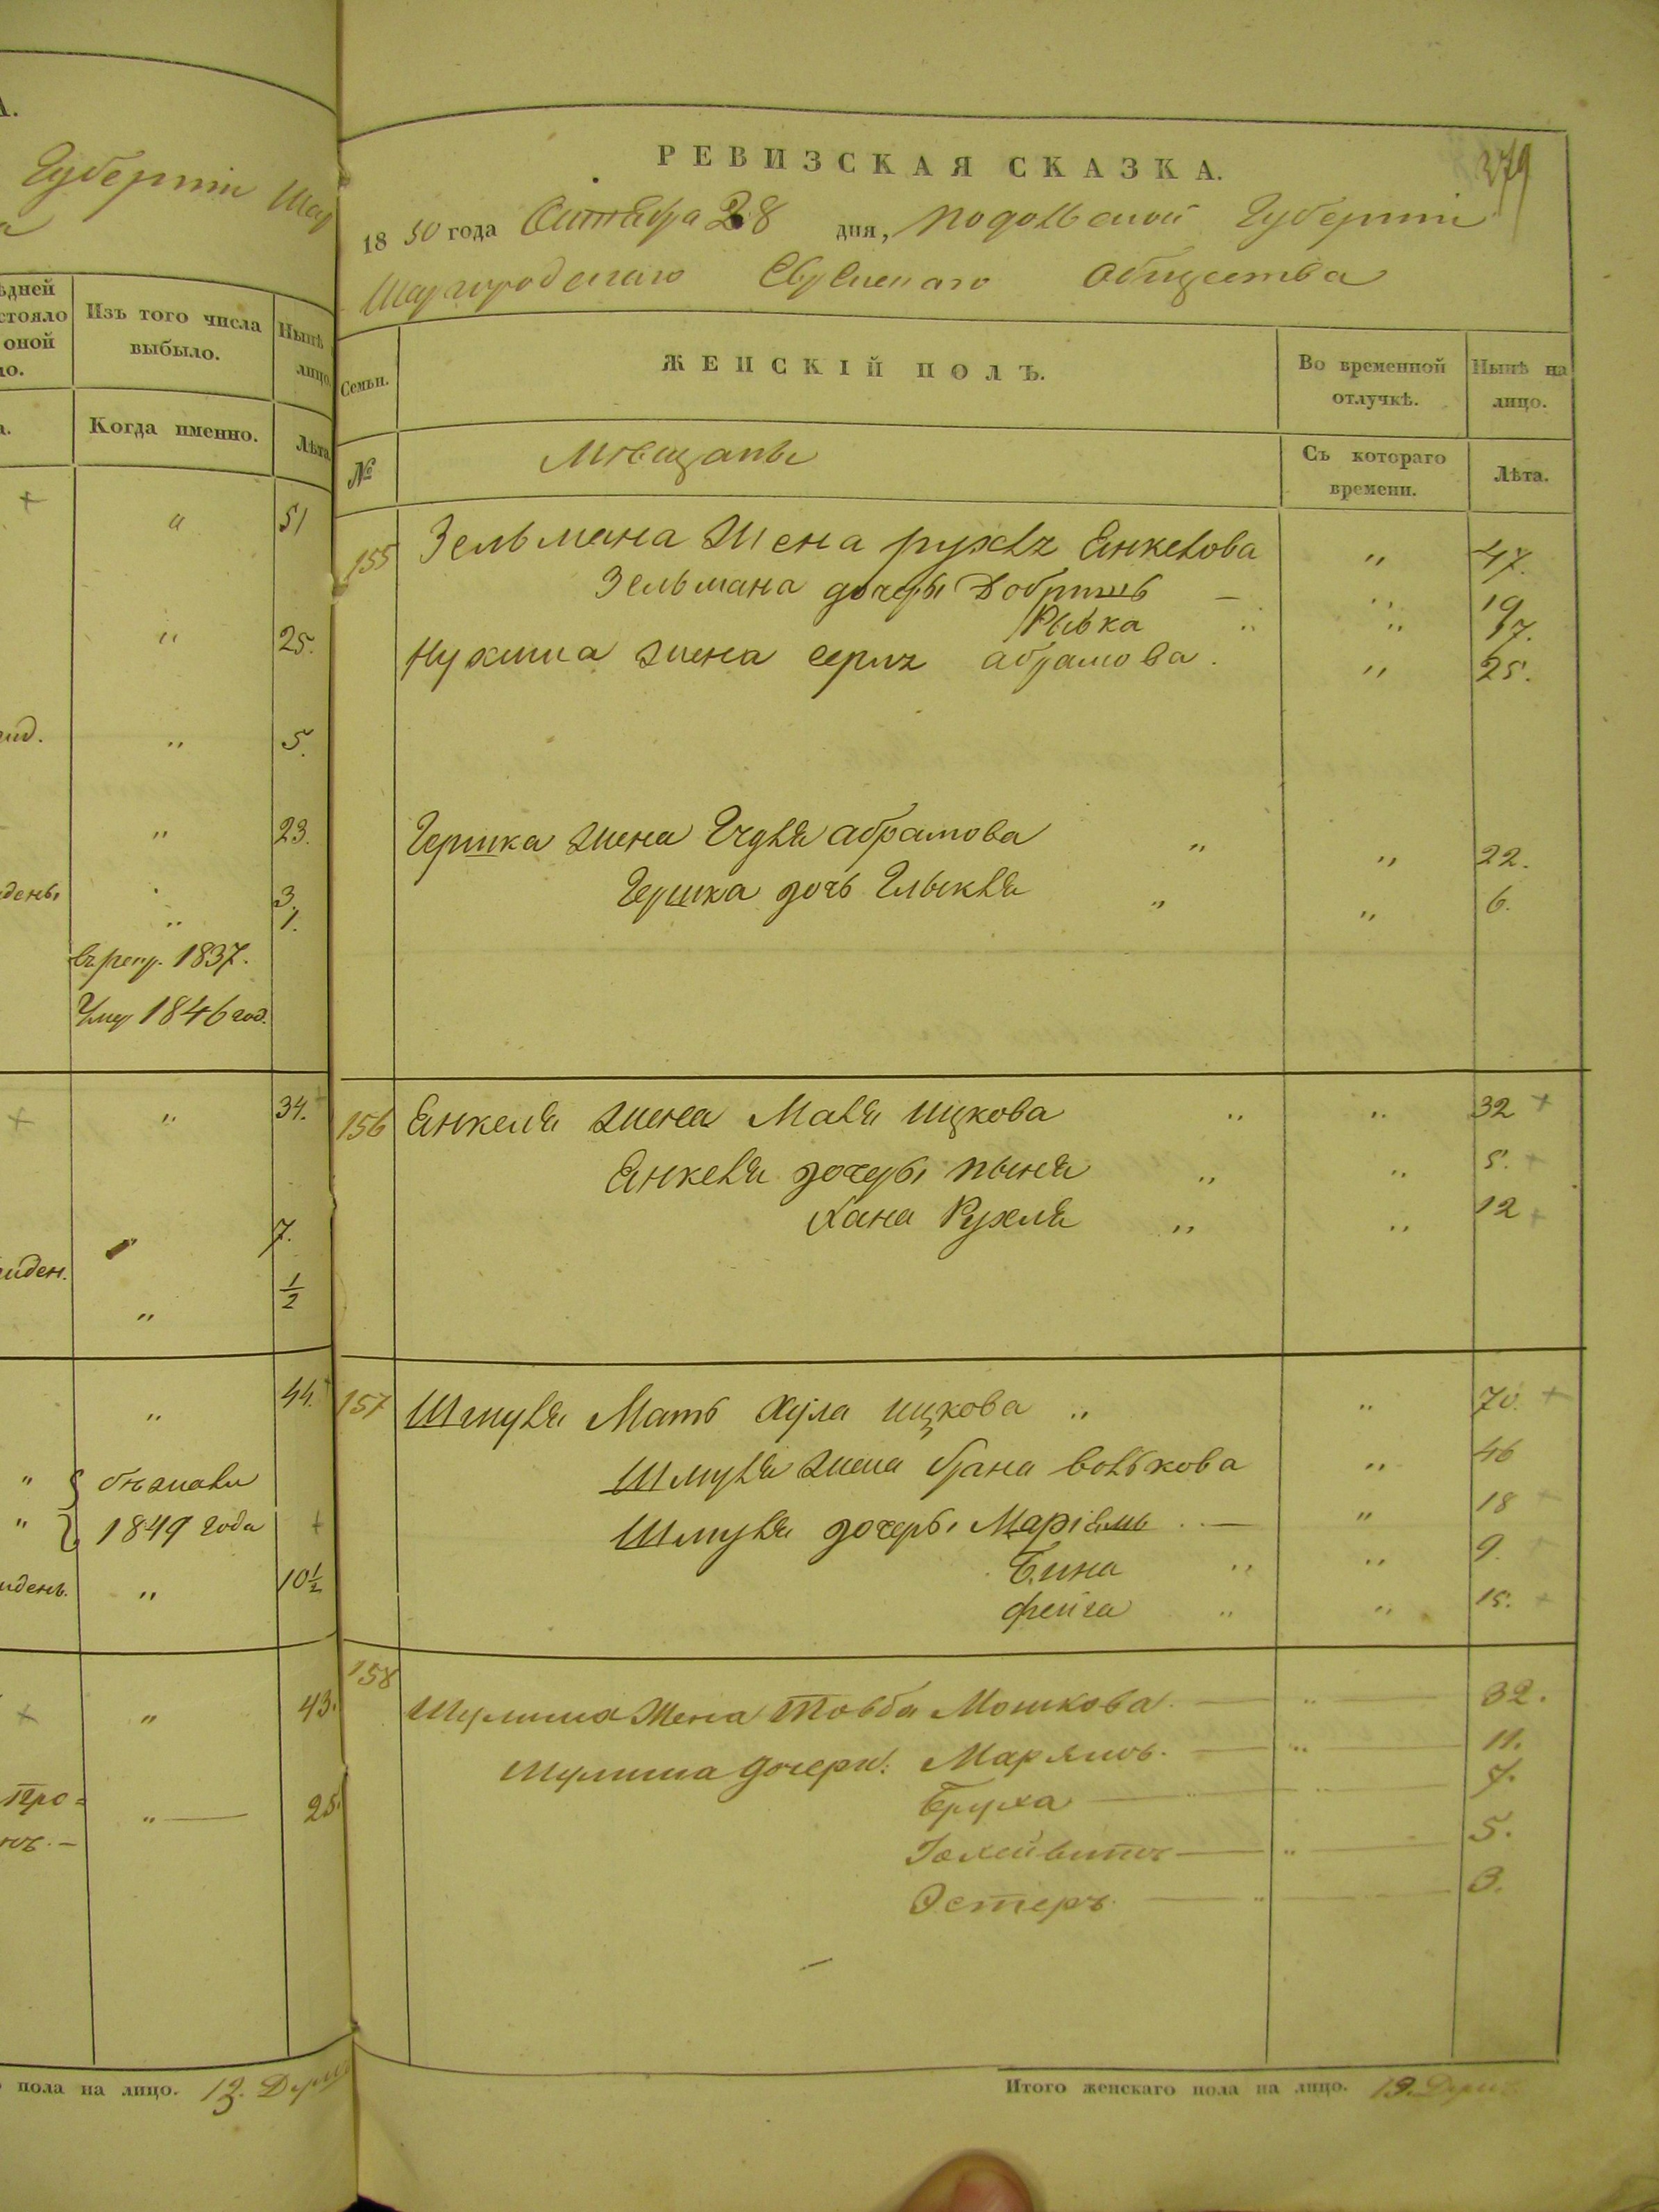 А.
Губерніи Шар
ѣдней
стояло
оной
ло.
Изъ того числа
выбыло.
Нынѣ
лицо.
а.
Когда именно.
Лѣта
+ " 51
" 25.
" 5.
" 23.
день " 3.
" 1.
въ рекр. 1837.
Умер 1846 год.
+ " 34.
7.
" ½
" 44.
"
" 1849 года +
" 10½
+ " 43.
" — 25.
пола на лицо. 13. Душ
379
РЕВИЗСКАЯ СКАЗКА.
1850 года Октября 28 дня, Подольской Губерніи
Шаргородскаго Еврейскаго Общества
Семьи.
ЖЕНСКІЙ ПОЛЪ.
Во временной
отлучкѣ.
Нынѣ на
лицо.
№
Мѣщане
Съ котораго
времени.
Лѣта.
155 Зельмана жена рухля Енкелова " 47.
Зельмана дочери Добришь — " 19
Рывка " " 17.
Нухима жена абрамова. " 25.
Гершка жена абрамова " " 22.
Гершка дочь " " 6.
156 Енкеля жена Маля ицкова " " 32 +
Енкеля дочери пыня " " 5. +
Хана Рухля " " 12 +
157 Шмуля Мать Хула ицкова " " 70. +
Шмуля жена брана волькова " 46
Шмуля дочери Маріемь — " 18 +
Бина " " 9. +
фейга " " 15. +
158
Шулима Жена Товба Мошкова. — " — 32.
Шулима дочери: Марямъ. — " — 11.
Бруха — " — " — 7.
— " — 5.
Эстеръ. — " — 3.
Итого женскаго пола на лицо. 19. Душъ